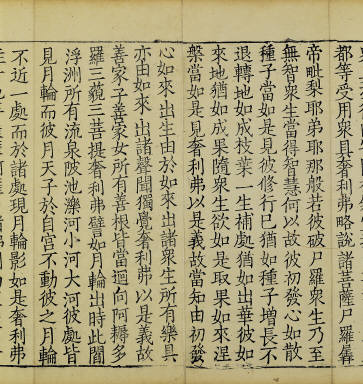 都等受用衆具奢利弗略說諸菩薩尸羅羼
帝毗梨耶弟耶那般若彼破尸羅衆生乃至
無智衆生當得智慧何以故彼初發心如散
種子當如是見彼修行已猶如種子增長不
退轉地如成枝葉一生補處猶如出華彼如
來地猶如成果隨衆生欲如是取果如來涅
槃當如是見奢利弗以是義故當知由初發
心如來出生由於如來出諸衆生所有樂具
亦由如來出諸聲聞獨覺奢利弗以是義故
善家子善家女所有善根皆當迴向阿耨多
羅三藐三菩提奢利弗譬如月輪出時此閻
浮洲所有流泉陂池濼河小河大河彼處皆
見月輪而彼月天子於自宮不動彼之月輪
不近一處而於諸處現月輪影如是奢利弗